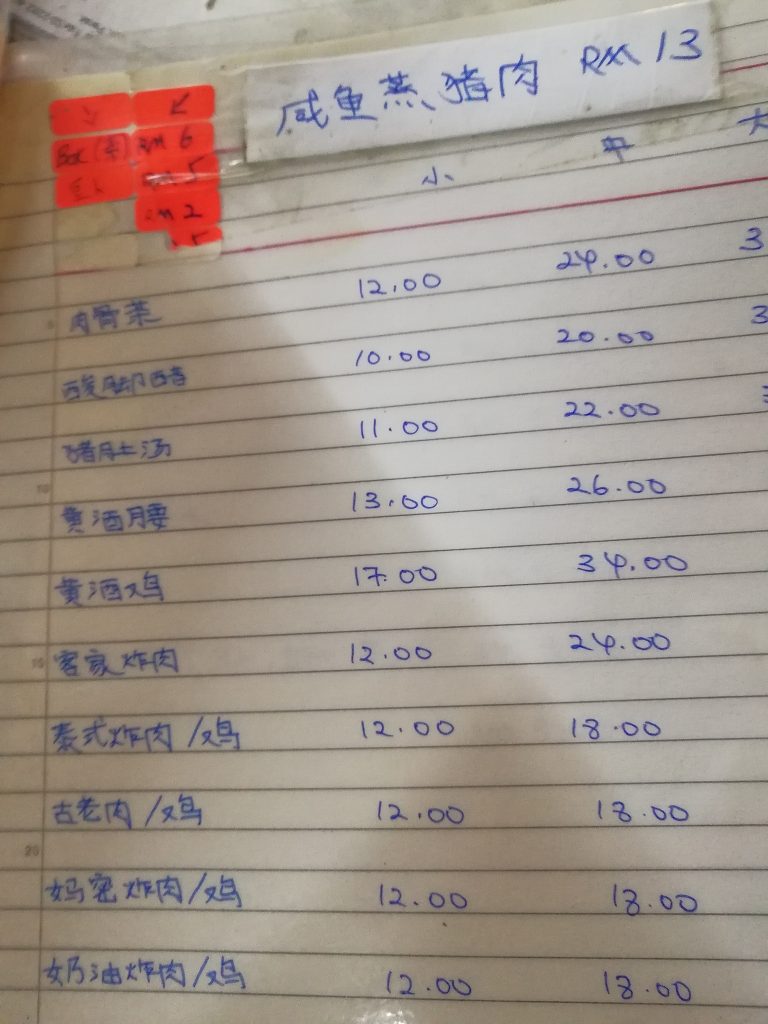 咸鱼蒸猪肉 RM 13
RM 6
RM 5
RM 2
小 中 大
肉骨茶 12.00 24.00 3
酸脚醋 10.00 20.00 3
猪肚汤 11.00 22.00
黄酒腰 13.00 26.00
黄酒鸡 17.00 34.00
客家炸肉 12.00 24.00
泰式炸肉/鸡 12.00 18.00
古老肉/鸡 12.00 18.00
妈密炸肉/鸡 12.00 18.00
奶油炸肉/鸡 12.00 18.00